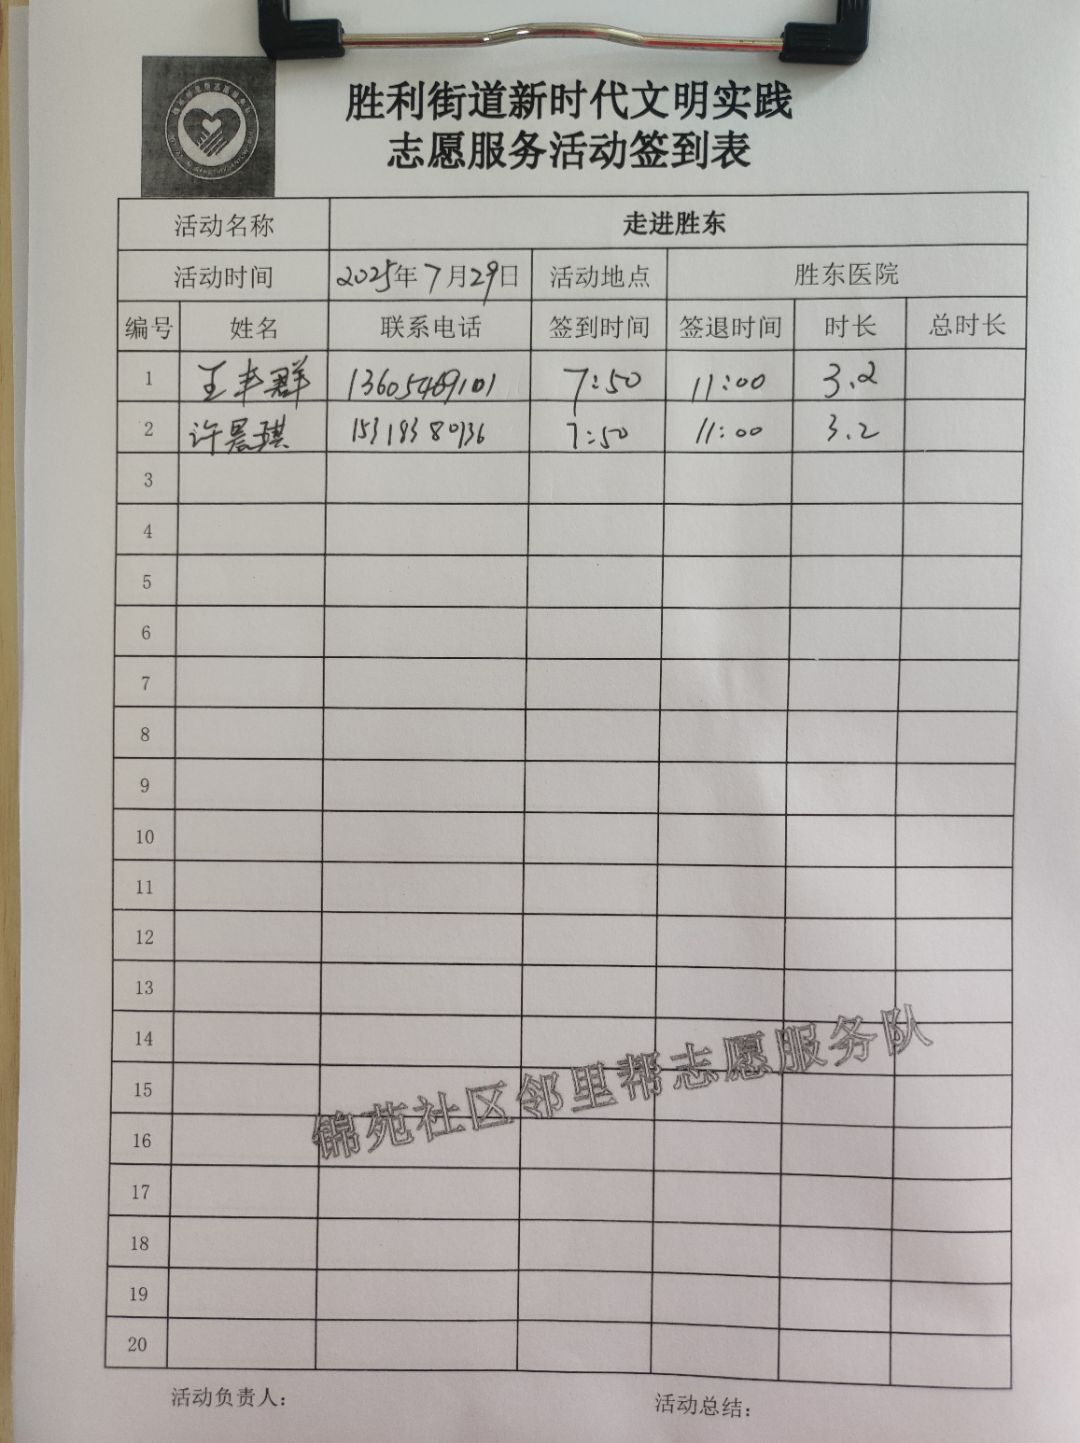 胜利街道新时代文明实践
志愿服务活动签到表
活动名称 走进胜东
活动时间 2025年7月29日 活动地点 胜东医院
编号 姓名 联系电话 签到时间 签退时间 时长 总时长
1 王丰群 13605469101 7:50 11:00 3.2
2 许晨琪 15319380736 7:50 11:00 3.2
3
4
5
6
7
8
9
10
11
12
13
14
15
16
17
18
19
20
锦苑社区邻里帮志愿服务队
活动负责人: 活动总结: